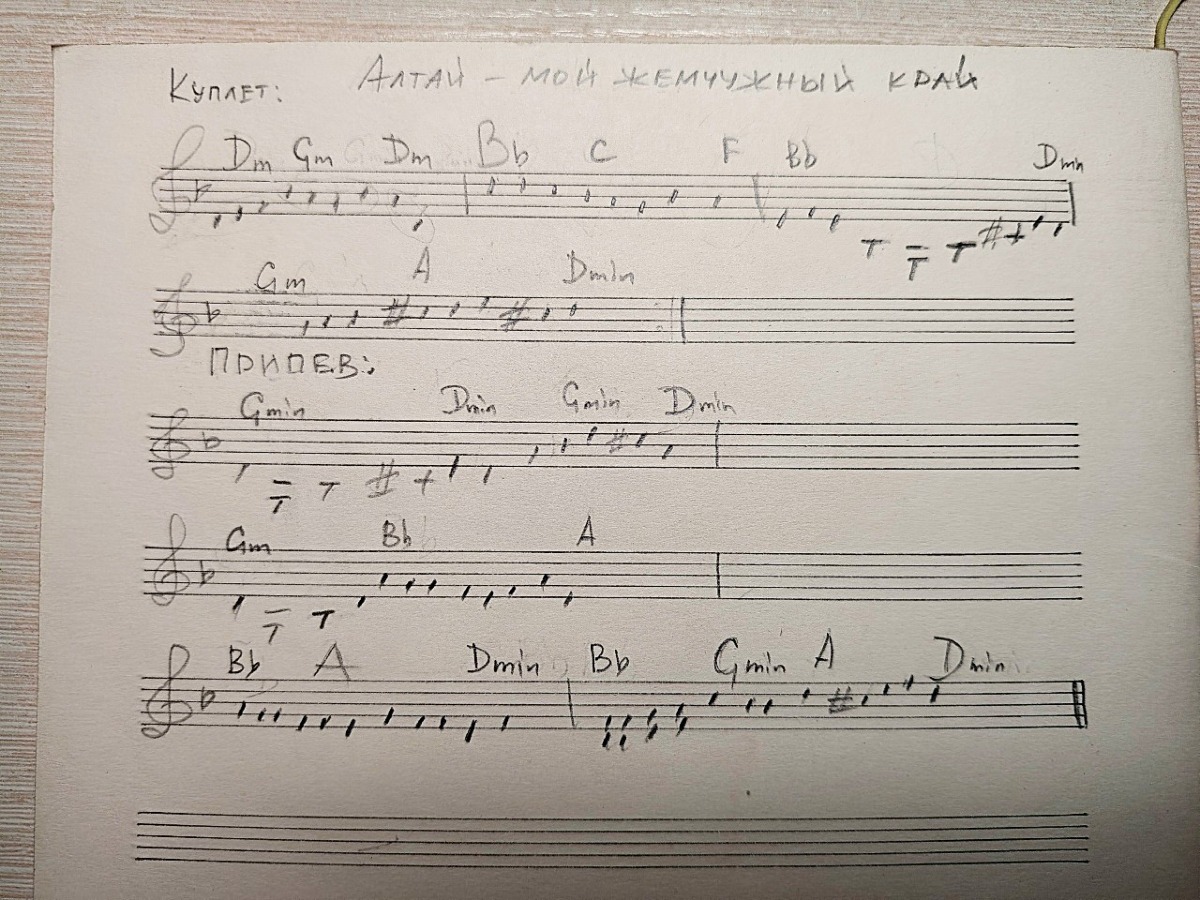 Алтай – мой жемчужный край
Куплет:
Dm Gm Dm Bb C F Bb Dmin
Gm A Dmin
Припев:
Gmin Dmin Gmin Dmin
Gm Bb A
Bb A Dmin Bb Gmin A Dmin